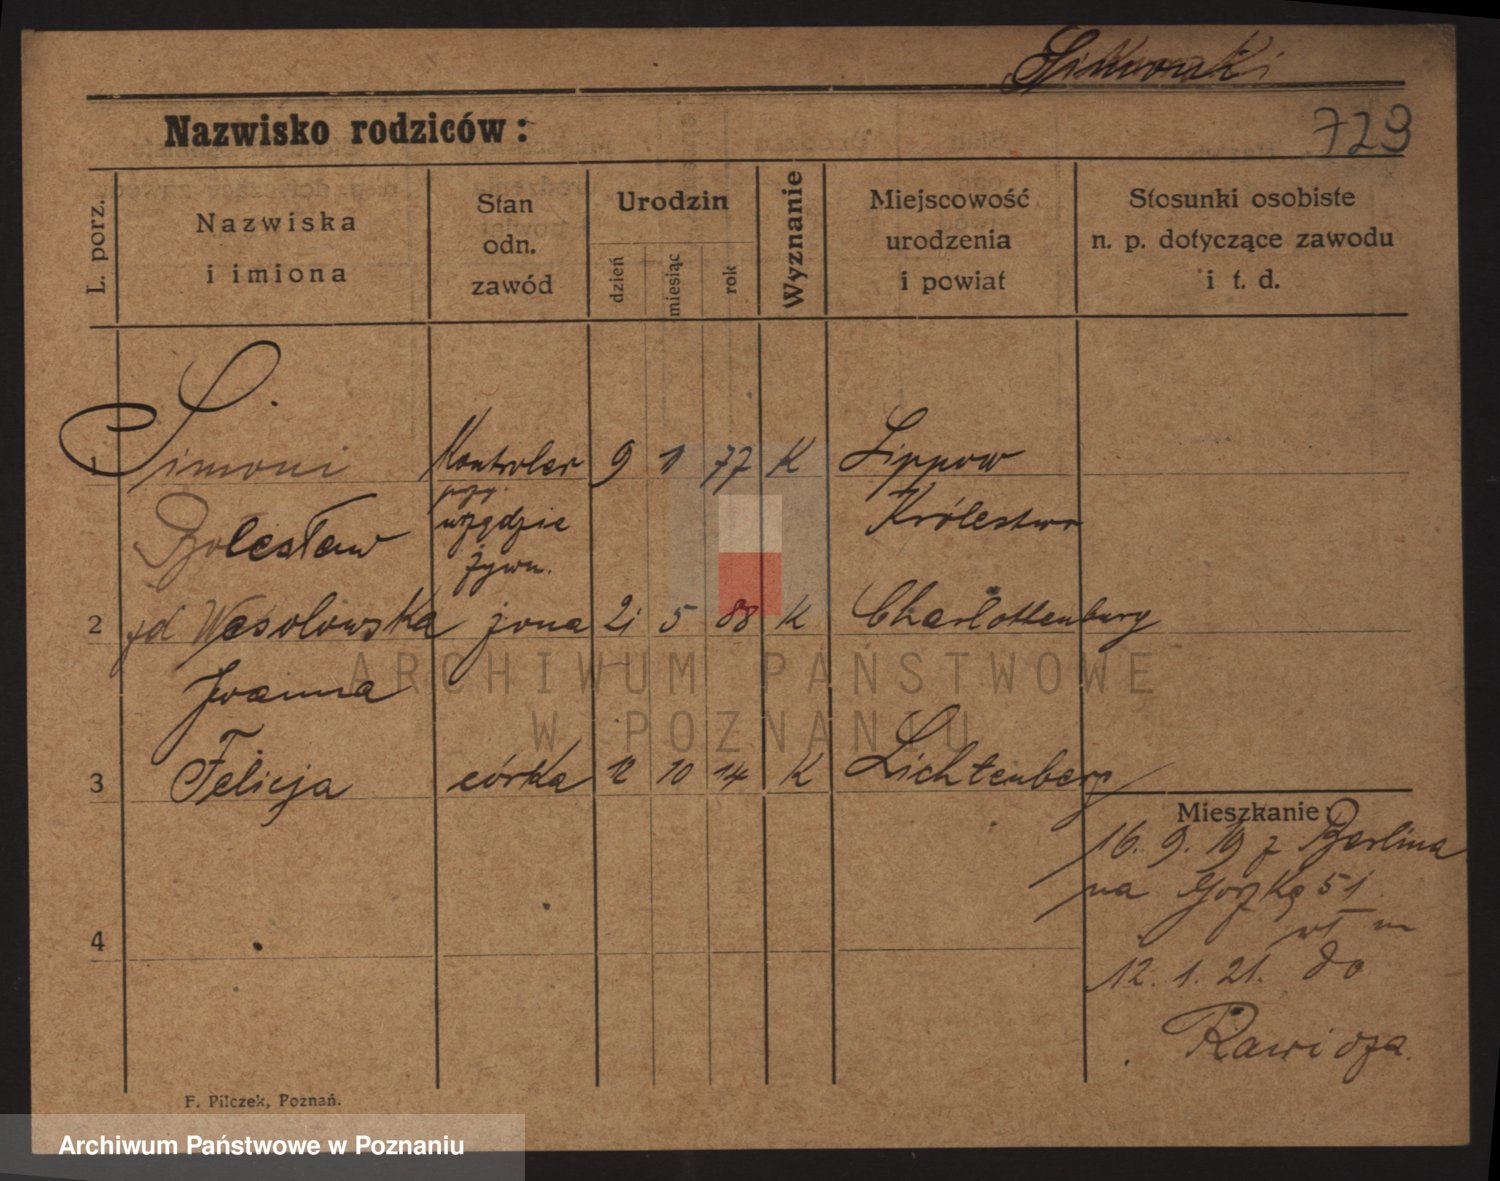 729
Nazwisko rodziców:
L. porz.
Nazwiska
i imiona
Stan
odn.
zawód
Urodzin
dzień
miesiąc
rok
Wyznanie
Miejscowość
urodzenia
i powiat
Stosunki osobiste
n. p. dotyczące zawodu
i t. d.
1 Simoni Kontroler 9 1 77 K Lippow
Bolesław urzędzie Królestwo
żywn.
2 Wesolowska żona 21 5 88 K Charlottenburg
Joanna
3 Felicja córka 12 10 14 K Lichtenberg
Mieszkanie:
16. 9. 19 z Berlina
na 51
4
12. 1. 21. do
Rawicza.
F. Pilczek, Poznań.
ARCHIWUM PAŃSTWOWE
W POZNANIU
Archiwum Państwowe w Poznaniu